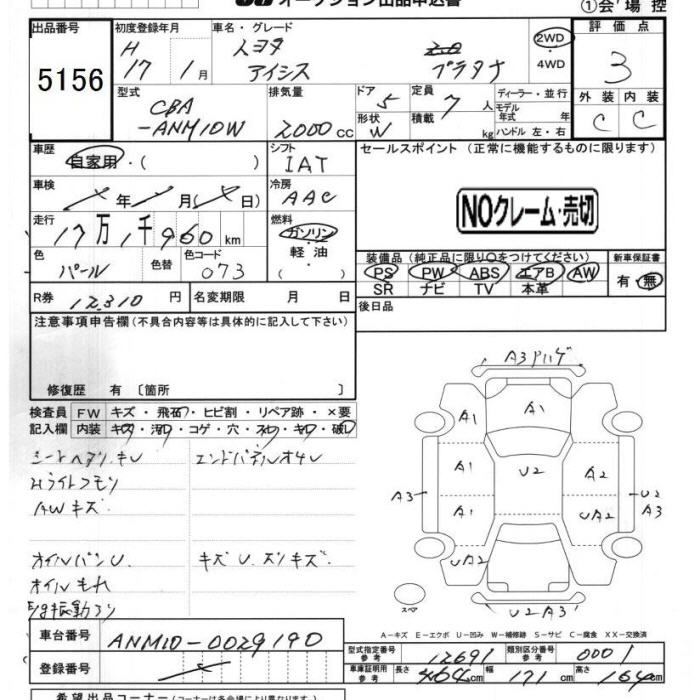 オークション出品申込書
①会場控
出品番号 初度登録年月 車名・グレード 評価点
5156
H 17年 1月
トヨタ アイシス プラタナ
2WD ・ 4WD
3
型式 排気量 ドア 定員 ディーラー・並行 外装 内装
CBA -ANM10W 2000cc 5 7人 モデル年式 年 C C
形状 W 積載 kg ハンドル 左・右
車歴 自家用・( ) シフト IAT セールスポイント (正常に機能するものに限ります)
車検 年 月( 日) 冷房 AAC
NOクレーム・売切
走行 17万1千960km 燃料 ガソリン・軽油・( )
色 パール 色替 色コード 073
装備品(純正品に限り〇をつけてください) 新車保証書
PS PW ABS エアB AW 有・無
SR ナビ TV 本革
R券 12,310円 名変期限 月 日 後日品
注意事項申告欄(不具合内容等は具体的に記入して下さい)
修復歴 有 〔箇所 〕
検査員 FW キズ・飛石・ヒビ割・リペア跡・×要
記入欄 内装 キズ・汚レ・コゲ・穴・スレ・キレ・破レ
エンドパネルオサU
AWキズ
オイルパンU. キズ U. ズリキズ.
オイルもれ
A3 アハゲ
A1 A1
A1 U2 A2
A3 A1 UA2 U2 A3
UA2 UA2
スペア U2 A3
A-キズ E-エクボ U-凹み W-補修跡 S-サビ C-腐食 XX-交換済
車台番号 ANM10-0029190
型式指定番号 参考 12691 類別区分番号 参考 0001
登録番号
車庫証明用 参考 長さ 464cm 幅 171cm 高さ 164cm
希望出品コーナー(コーナーは各会場により異なります)